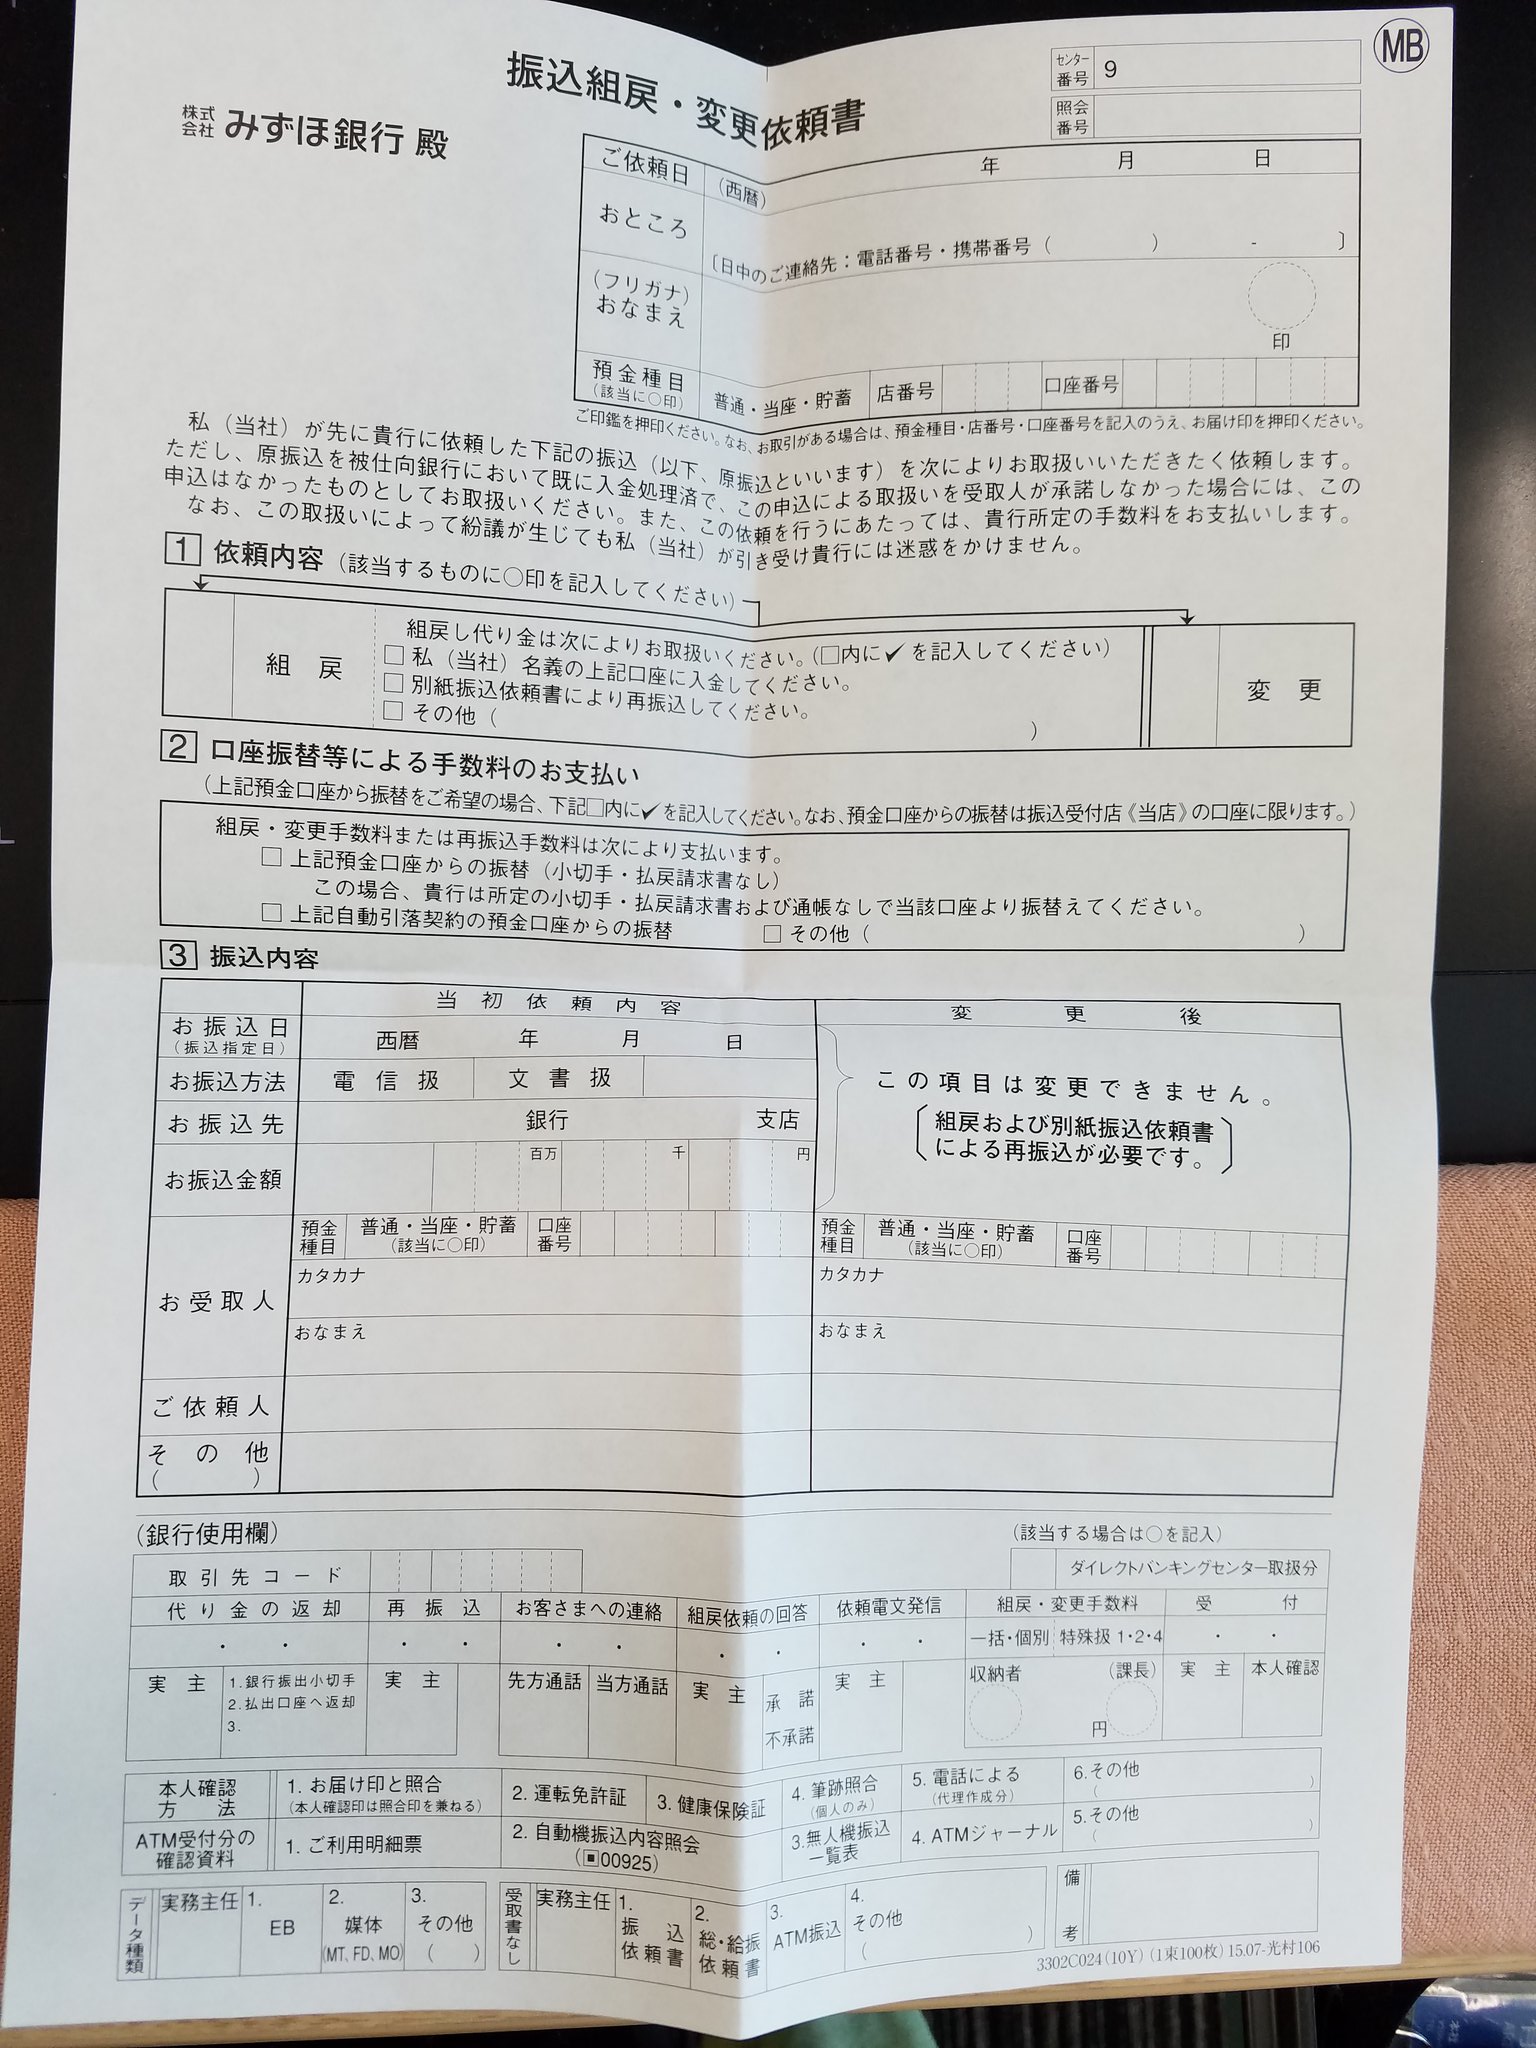 MB
振込組戻・変更依頼書
センター番号 9
照会番号
株式会社 みずほ銀行 殿
ご依頼日 (西暦) 年 月 日
おところ
〔日中のご連絡先:電話番号・携帯番号( ) - 〕
(フリガナ)
おなまえ
印
預金種目 (該当に○印) 普通・当座・貯蓄 店番号 口座番号
ご印鑑を押印ください。なお、お取引がある場合は、預金種目・店番号・口座番号を記入のうえ、お届け印を押印ください。
私(当社)が先に貴行に依頼した下記の振込(以下、原振込といいます)を次によりお取扱いいただきたく依頼します。
ただし、原振込を被仕向銀行において既に入金処理済で、この申込による取扱いを受取人が承諾しなかった場合には、この
申込はなかったものとしてお取扱いください。また、この依頼を行うにあたっては、貴行所定の手数料をお支払いします。
なお、この取扱いによって紛議が生じても私(当社)が引き受け貴行には迷惑をかけません。
1 依頼内容(該当するものに○印を記入してください)
組戻し代り金は次によりお取扱いください。(□内に✔を記入してください)
組 戻
□ 私(当社)名義の上記口座に入金してください。
□ 別紙振込依頼書により再振込してください。
□ その他( )
変 更
2 口座振替等による手数料のお支払い
(上記預金口座から振替をご希望の場合、下記□内に✔を記入してください。なお、預金口座からの振替は振込受付店《当店》の口座に限ります。)
組戻・変更手数料または再振込手数料は次により支払います。
□ 上記預金口座からの振替(小切手・払戻請求書なし)
この場合、貴行は所定の小切手・払戻請求書および通帳なしで当該口座より振替えてください。
□ 上記自動引落契約の預金口座からの振替 □ その他( )
3 振込内容
当初依頼内容 変更後
お振込日 (振込指定日) 西暦 年 月 日
お振込方法 電信扱 文書扱
この項目は変更できません。
お振込先 銀行 支店
〔組戻および別紙振込依頼書
による再振込が必要です。〕
お振込金額 百万 千 円
お受取人
預金種目 普通・当座・貯蓄 (該当に○印) 口座番号 預金種目 普通・当座・貯蓄 (該当に○印) 口座番号
カタカナ カタカナ
おなまえ おなまえ
ご依頼人
その他
( )
(銀行使用欄) (該当する場合は○を記入)
取引先コード ダイレクトバンキングセンター取扱分
代り金の返却 再振込 お客さまへの連絡 組戻依頼の回答 依頼電文発信 組戻・変更手数料 受付
・ ・ ・ ・ ・ ・ ・ ・ ・ ・ 一括・個別 特殊扱 1・2・4 ・ ・
実 主 1.銀行振出小切手 実 主 先方通話 当方通話 実 主 承諾 実 主 収納者 (課長) 実 主 本人確認
2.払出口座へ返却
3. 不承諾 円
本人確認方法 1. お届け印と照合 (本人確認印は照合印を兼ねる) 2. 運転免許証 3. 健康保険証 4. 筆跡照合 (個人のみ) 5. 電話による (代理作成分) 6.その他 ( )
ATM受付分の確認資料 1. ご利用明細票 2. 自動機振込内容照会 (▣00925) 3.無人機振込一覧表 4. ATMジャーナル 5.その他 ( )
データ種類 実務主任 1. EB 2. 媒体 (MT、FD、MO) 3. その他 ( )
受取書なし 実務主任 1. 振込依頼書 2. 総・給振依頼書 3. ATM振込 4. その他 ( )
備考
3302C024(10Y) (1束100枚) 15.07-光村106